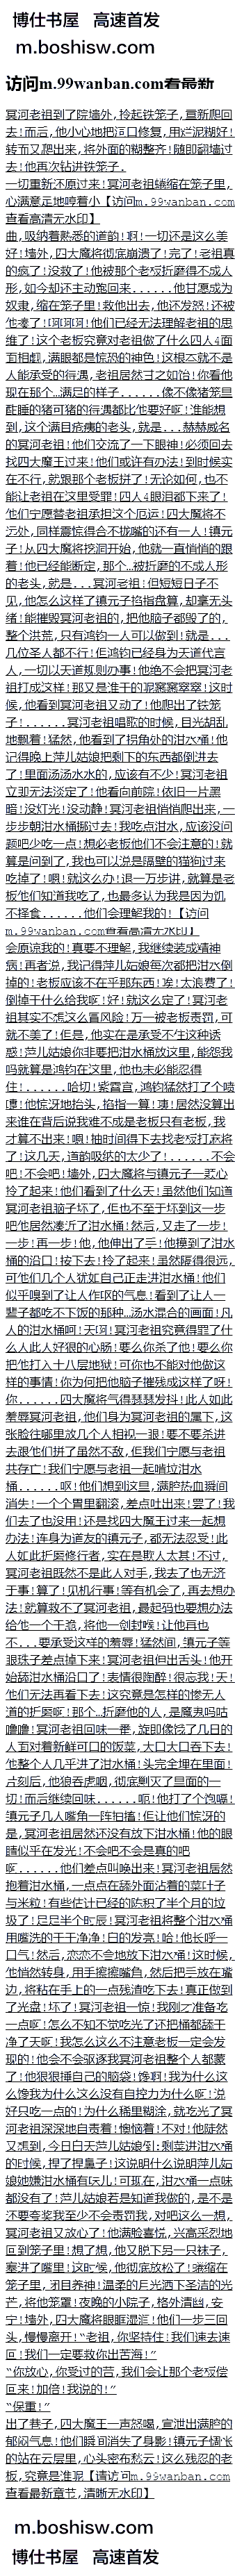 博仕书屋 高速首发
m.boshisw.com
访问m.99wanban.com查看最新
冥河老祖到了院墙外,拎起铁笼子,重新爬回
去!而后,他小心地把洞口修复,用烂泥糊好!
转而又爬出来,将外面的糊整齐!随即翻墙过
去!他再次钻进铁笼子.
一切重新还原过来!冥河老祖蜷缩在笼子里,
心满意足地哼着小【访问m.99wanban.com
查看高清无水印】
曲,吸纳着熟悉的道韵!啊!一切还是这么美
好!墙外,四大魔将彻底崩溃了!完了!老祖真
的疯了!没救了!他被那个老板折磨得不成人
形,如今却还主动跑回来......他甘愿成为
奴隶,缩在笼子里!救他出去,他还发怒!还被
他揍了!啊啊啊!他们已经无法理解老祖的思
维了!这个老板究竟对老祖做了什么四人4面
面相觑,满眼都是惊恐的神色!这根本就不是
人能承受的待遇,老祖居然甘之如饴!你看他
现在那个...满足的样子......像不像猪笼里
酣睡的猪可猪的待遇都比他要好啊!谁能想
到,这个满目疮痍的老头,就是...赫赫威名
的冥河老祖!他们交流了一下眼神!必须回去
找四大魔王过来!他们或许有办法!到时候实
在不行,就跟那个老板拼了!无论如何,也不
能让老祖在这里受罪!四人4眼泪都下来了!
他们宁愿替老祖承担这个厄运!四大魔将不
远处,同样震惊得合不拢嘴的还有一人!镇元
子!从四大魔将挖洞开始,他就一直悄悄的跟
着!他已经能断定,那个...被折磨的不成人形
的老头,就是...冥河老祖!但短短日子不
见,他怎么这样了镇元子掐指盘算,却毫无头
绪!能摧毁冥河老祖的,把他脑子都毁了的,
整个洪荒,只有鸿钧一人可以做到!就是...
几位圣人都不行!但鸿钧已经身为天道代言
人,一切以天道规则办事!他绝不会把冥河老
祖打成这样!那又是谁干的呢窸窸窣窣!这时
候,他看到冥河老祖又动了!他爬出了铁笼
子!......冥河老祖唱歌的时候,目光胡乱
地飘着!猛然,他看到了拐角处的泔水桶!他
记得晚上萍儿姑娘把剩下的东西都倒进去
了!里面汤汤水水的,应该有不少!冥河老祖
立即无法淡定了!他看向前院!依旧一片黑
暗!没灯光!没动静!冥河老祖悄悄爬出来,一
步步朝泔水桶挪过去!我吃点泔水,应该没问
题吧少吃一点!想必老板他们不会注意的!就
算是问到了,我也可以说是隔壁的猫狗过来
吃掉了!嗯!就这么办!退一万步讲,就算是老
板他们知道我吃了,也最多认为我是因为饥
不择食......他们会理解我的!【访问
m.99wanban.com查看高清无水印】
会原谅我的!真要不理解,我继续装成精神
病!再者说,我记得萍儿姑娘每次都把泔水倒
掉的!老板应该不在乎那东西!唉!太浪费了!
倒掉干什么给我啊!好!就这么定了!冥河老
祖其实不想这么冒风险!万一被老板责罚,可
就不美了!但是,他实在是承受不住这种诱
惑!萍儿姑娘你非要把泔水桶放这里,能怨我
吗就算是鸿钧在这里,他也未必能忍得
住!......哈切!紫霄宫,鸿钧猛然打了个喷
嚏!他惊讶地抬头,掐指一算!咦!居然没算出
来谁在背后说我难不成是老板只有老板,我
才算不出来!嗯!抽时间得下去找老板打麻将
了!这几天,道韵吸纳的太少了!......不会
吧!不会吧!墙外,四大魔将与镇元子一起心
拎了起来!他们看到了什么天!虽然他们知道
冥河老祖脑子坏了,但也不至于坏到这一步
吧他居然凑近了泔水桶!然后,又走了一步!
一步!再一步!他,他伸出了手!他摸到了泔水
桶的沿口!按下去!拎了起来!虽然隔得很远,
可他们几个人犹如自己正走进泔水桶!他们
似乎嗅到了让人作呕的气息!看到了让人一
辈子都吃不下饭的那种...汤水混合的画面!凡
人的泔水桶呵!天啊!冥河老祖究竟得罪了什
么人此人好狠的心肠!要么你杀了他!要么你
把他打入十八层地狱!可你也不能对他做这
样的事情!你为何把他脑子摧残成这样了呀!
你......四大魔将气得瑟瑟发抖!此人如此
羞辱冥河老祖,他们身为冥河老祖的属下,这
张脸往哪里放几个人相视一眼!要不要杀进
去跟他们拼了虽然不敌,但我们宁愿与老祖
共存亡!我们宁愿与老祖一起啃垃泔水
桶......呕!他们想到这里,满腔热血瞬间
消失!一个个胃里翻滚,差点吐出来!罢了!我
们去了也没用!还是找四大魔王过来一起想
办法!连身为道友的镇元子,都无法忍受!此
人如此折磨修行者,实在是欺人太甚!不过,
冥河老祖既然不是此人对手,我去了也无济
于事!算了!见机行事!等有机会了,再去想办
法!就算救不了冥河老祖,最起码也要想办法
给他一个干脆,将他一剑封喉!让他再也
不...要承受这样的羞辱!猛然间,镇元子等
眼珠子差点掉下来!冥河老祖伸出舌头!他开
始舔泔水桶沿口了!表情很陶醉!很忘我!天!
他们无法再看下去!这究竟是怎样的惨无人
道的折磨啊!那个...折磨他的人,是魔鬼吗咕
噜噜!冥河老祖回味一番,旋即像饿了几日的
人面对着新鲜可口的饭菜,大口大口吞下去!
他整个人几乎进了泔水桶!头完全埋在里面!
片刻后,他狼吞虎咽,彻底剿灭了里面的一
切!而后继续回味......呃!他打了个饱嗝!
镇元子几人嘴角一阵抽搐!但让他们惊讶的
是,冥河老祖居然还没有放下泔水桶!他的眼
睛似乎在发光!不会吧不会是真的吧
啊......他们差点叫唤出来!冥河老祖居然
抱着泔水桶,一点点在舔外面沾着的菜叶子
与米粒!有些估计已经的陈积了半个月的垃
圾了!足足半个时辰!冥河老祖将整个泔水桶
用嘴洗的干干净净!白的发亮!哈!他长呼一
口气!然后,恋恋不舍地放下泔水桶!这时候,
他悄然转身,用手擦擦嘴角,然后把手放在嘴
边,将粘在手上的一点残渣吃下去!真正做到
了光盘!坏了!冥河老祖一惊!我刚才准备吃
一点啊!怎么不知不觉吃光了还把桶都舔干
净了天啊!我怎么这么不注意老板一定会发
现的!他会不会驱逐我冥河老祖整个人都蒙
了!他狠狠捶自己的脑袋!馋啊!我为什么这
么馋我为什么这么没有自控力为什么啊!说
好只吃一点的!为什么稀里糊涂,就吃光了冥
河老祖深深地自责着!懊恼着!不对!他陡然
又想到,今日白天萍儿姑娘倒;剩菜进泔水桶
的时候,捏了捏鼻子!这说明什么说明萍儿姑
娘她嫌泔水桶有味儿!可现在,泔水桶一点味
都没有了!萍儿姑娘若是知道我做的,是不是
还要夸奖我至少不会责罚我,对吧这么一想,
冥河老祖又放心了!他满脸喜悦,兴高采烈地
回到笼子里!想了想,他又脱下另一只袜子,
塞进了嘴里!这时候,他彻底放松了!蜷缩在
笼子里,闭目养神!温柔的月光洒下圣洁的光
芒,将他笼罩!夜晚的小院子,格外清幽,安
宁!墙外,四大魔将眼眶湿润!他们一步三回
头,慢慢离开!“老祖,你坚持住!我们速去速
回!我们一定要救你出苦海!”
“你放心,你受过的苦,我们会让那个老板偿
回来!加倍!我说的!”
“保重!”
出了巷子,四大魔王一声怒喝,宣泄出满腔的
郁闷气息!他们瞬间消失了身影!镇元子惆怅
的站在云层里,心头密布愁云!这么残忍的老
板,究竟是谁呢【请访问m.99wanban.com
查看最新章节,清晰无水印】
m.boshisw.com
博仕书屋 高速首发